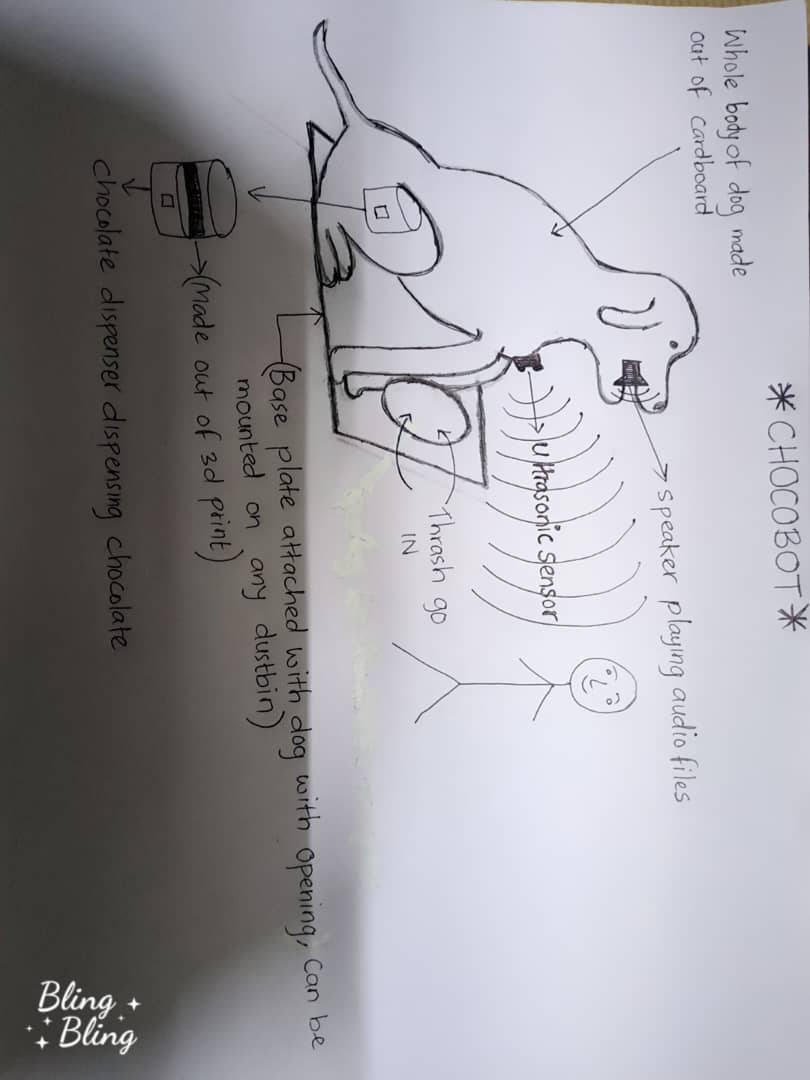 *CHOCOBOT*
Whole body of dog made
out of cardboard
speaker playing audio files
ultrasonic sensor
Thrash go
IN
(Base plate attached with dog with opening, can be
mounted on any dustbin)
(Made out of 3d print)
chocolate dispenser dispensing chocolate
Bling
Bling